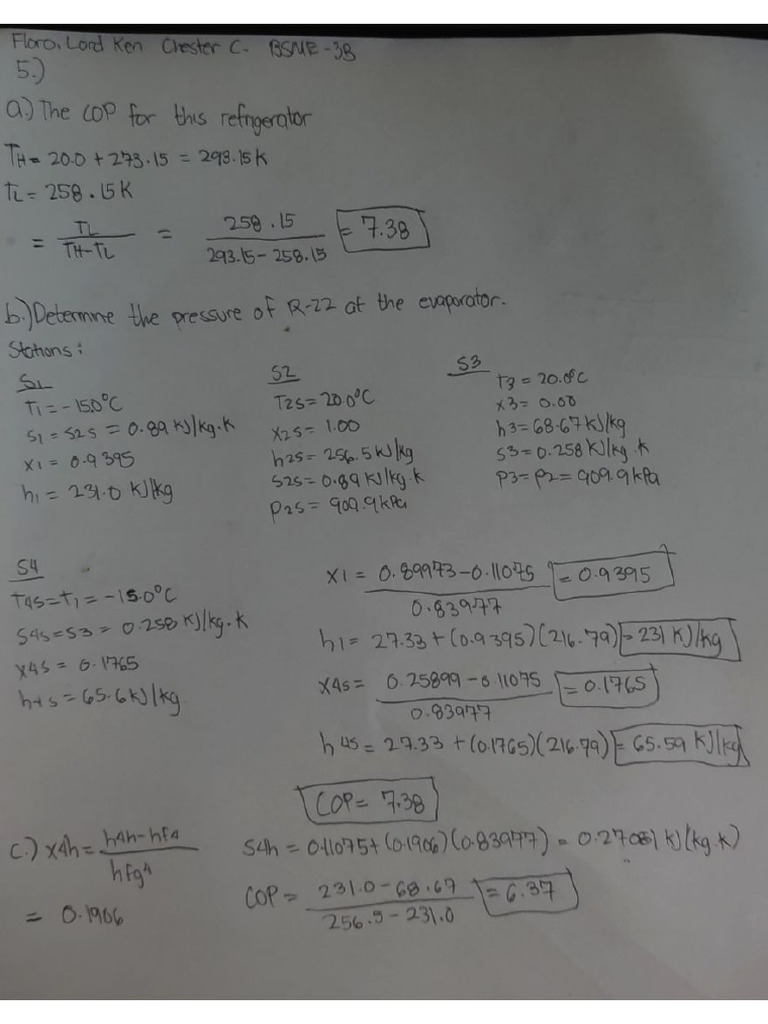 Floro, Lord Ken Chester C. BSME-3B
5.)
a.) The COP for this refrigerator
TH = 20.0 + 273.15 = 293.15K
TL = 258.15K
= TL / TH-TL = 258.15 / 293.15-258.15 = 7.38
b.) Determine the pressure of R-22 at the evaporator.
Stations:
S1
T1 = -15.0°C
S1 = S2s = 0.89 kJ/kg.K
x1 = 0.9395
h1 = 231.0 kJ/kg
S2
T2s = 20.0°C
x2s = 1.00
h2s = 256.5 kJ/kg
S2s = 0.89 kJ/kg.k
P2s = 909.9 kPa
S3
T3 = 20.0°C
x3 = 0.00
h3 = 68.67 kJ/kg
S3 = 0.258 kJ/kg.k
P3 = P2 = 909.9 kPa
S4
T4s = T1 = -15.0°C
S4s = S3 = 0.258 kJ/kg.k
x4s = 0.1765
h4s = 65.6 kJ/kg
x1 = 0.89973-0.11075 / 0.83977 = 0.9395
h1 = 27.33 + (0.9395)(216.79) = 231 kJ/kg
x4s = 0.25899-0.11075 / 0.83977 = 0.1765
h4s = 27.33 + (0.1765)(216.79) = 65.59 kJ/kg
COP = 7.38
c.) x4h = h4h-hf4 / hfg4
= 0.1906
S4h = 0.11075+(0.1906)(0.83977) = 0.27081 kJ/(kg.k)
COP = 231.0-68.67 / 256.5-231.0 = 6.37